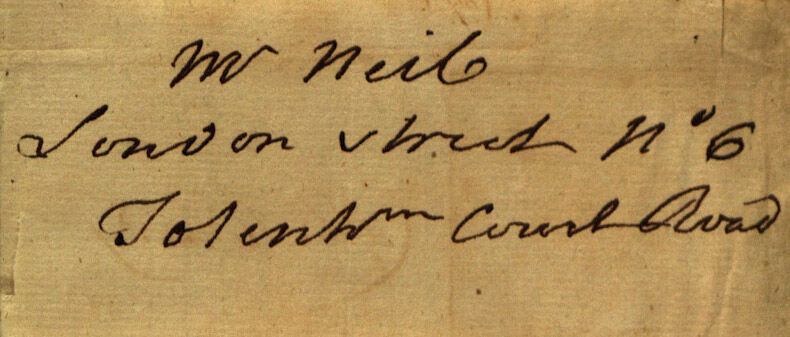 Mr Neil
London street No 6
Totenhm Court Road